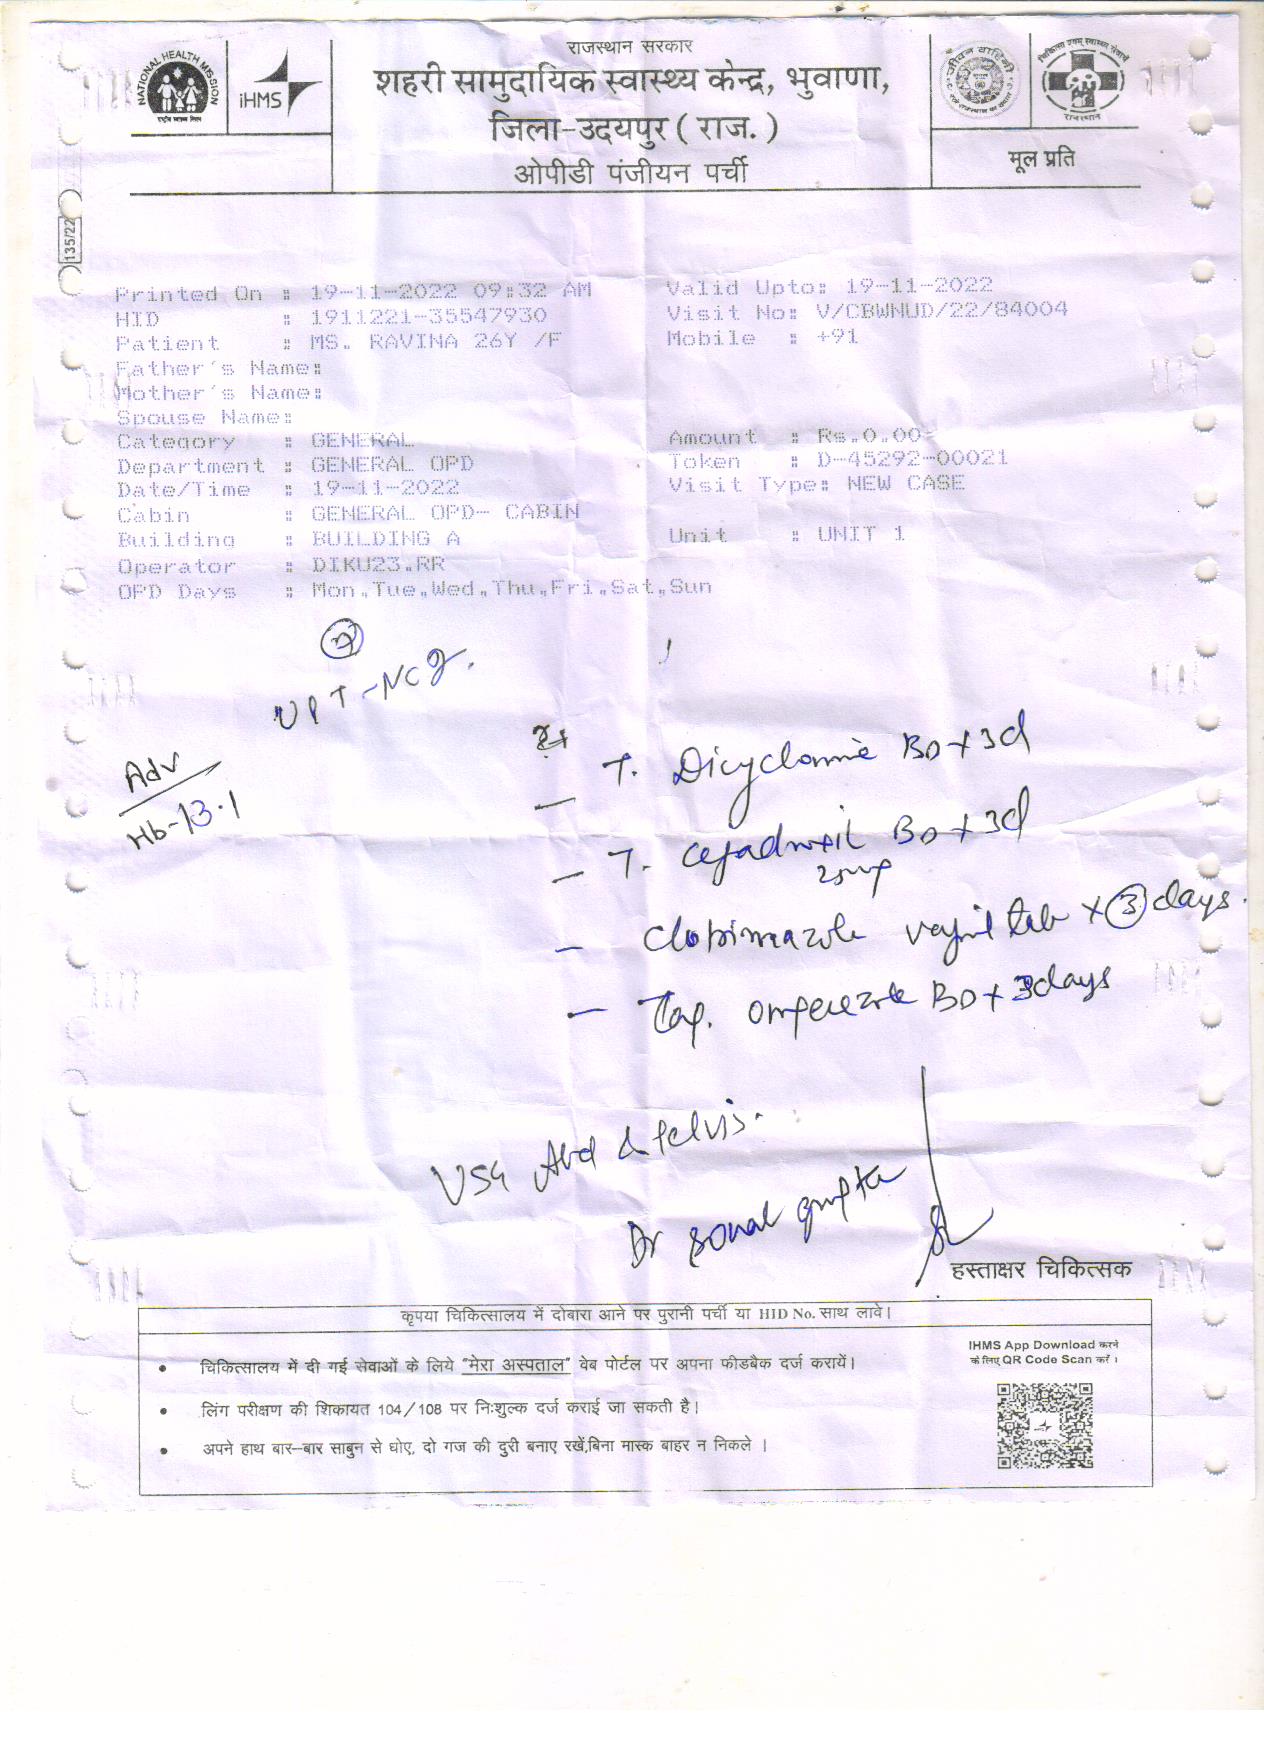 राजस्थान सरकार
NATIONAL HEALTH MISSION
राष्ट्रीय स्वास्थ्य मिशन
iHMS
शहरी सामुदायिक स्वास्थ्य केन्द्र, भुवाणा,
जिला-उदयपुर ( राज. )
ओपीडी पंजीयन पर्ची
राजस्थान
मूल प्रति
135/22
Printed On : 19-11-2022 09:32 AM Valid Upto: 19-11-2022
HID : 1911221-35547930 Visit No: V/CBWNUD/22/84004
Patient : MS. RAVINA 26Y /F Mobile : +91
Father's Name:
Mother's Name:
Spouse Name:
Category : GENERAL Amount : Rs.0.00
Department : GENERAL OPD Token : D-45292-00021
Date/Time : 19-11-2022 Visit Type: NEW CASE
Cabin : GENERAL OPD- CABIN
Building : BUILDING A Unit : UNIT 1
Operator : DIKU23.RR
OPD Days : Mon,Tue,Wed,Thu,Fri,Sat,Sun
UPT-Neg.
Adv
Hb-13.1
- T. Dicyclomine BD x 3d
- T. Cefadroxil BD x 3d
- Clotrimazole vaginal tab x 3 days.
- Cap. Omperezole BD x 3days
USG Abd & Pelvis.
Dr Sonal Gupta
हस्ताक्षर चिकित्सक
कृपया चिकित्सालय में दोबारा आने पर पुरानी पर्ची या HID No. साथ लावे।
• चिकित्सालय में दी गई सेवाओं के लिये "मेरा अस्पताल" वेब पोर्टल पर अपना फीडबैक दर्ज करायें।
• लिंग परीक्षण की शिकायत 104/108 पर निःशुल्क दर्ज कराई जा सकती है।
• अपने हाथ बार-बार साबुन से धोए, दो गज की दुरी बनाए रखें,बिना मास्क बाहर न निकले ।
IHMS App Download करने
के लिए QR Code Scan करें ।